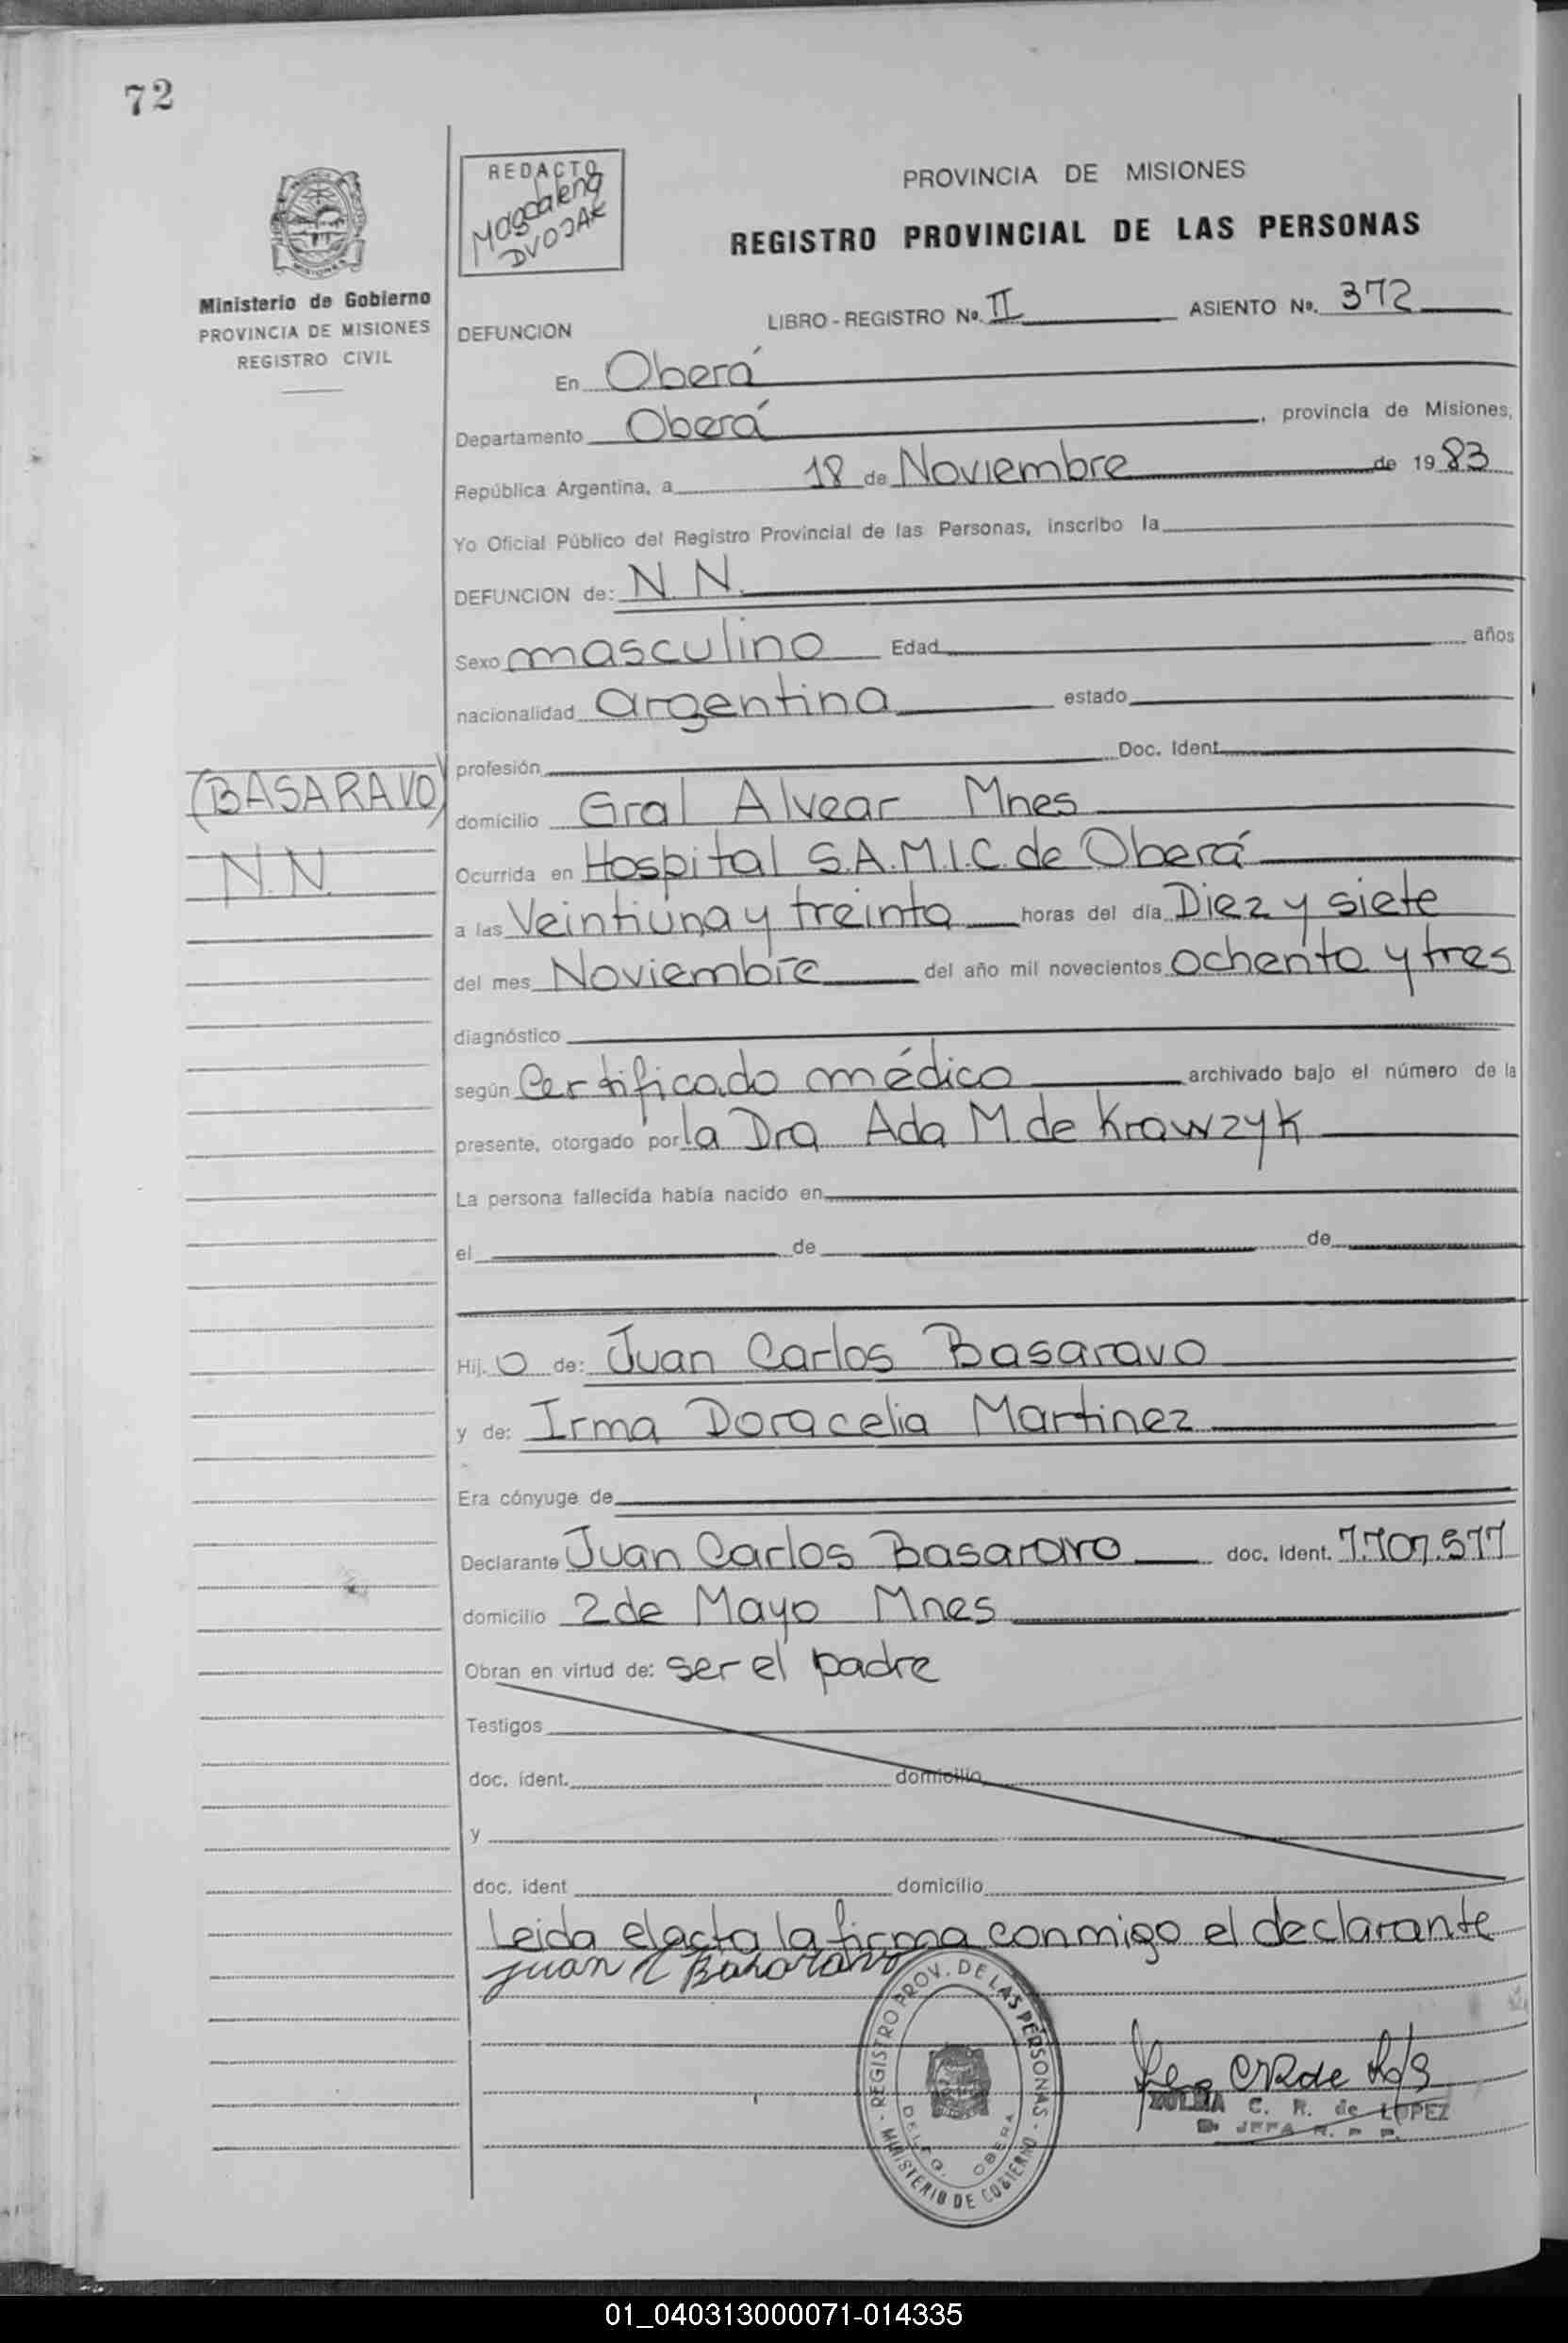 72
REDACTO
Magdalena
DVOJAK
PROVINCIA DE MISIONES
REGISTRO PROVINCIAL DE LAS PERSONAS
Ministerio de Gobierno
PROVINCIA DE MISIONES
REGISTRO CIVIL
DEFUNCION LIBRO-REGISTRO Nº. II ASIENTO Nº. 372
En Oberá
Departamento Oberá, provincia de Misiones,
República Argentina, a 18 de Noviembre de 1983
Yo Oficial Público del Registro Provincial de las Personas, inscribo la
DEFUNCION de: N.N.
Sexo masculino Edad años
nacionalidad argentina estado
profesión Doc. Ident.
(BASARAVO)
domicilio Gral Alvear Mnes
N.N.
Ocurrida en Hospital S.A.M.I.C. de Oberá
a las Veintiuna y treinta horas del día Diez y siete
del mes Noviembre del año mil novecientos ochenta y tres
diagnóstico
según Certificado médico archivado bajo el número de la
presente, otorgado por la Dra Ada M. de Krawzyk
La persona fallecida había nacido en
el de de
Hij.o de: Juan Carlos Basaravo
y de: Irma Doracelia Martinez
Era cónyuge de
Declarante Juan Carlos Basaravo doc. ident. 7.707.577
domicilio 2 de Mayo Mnes
Obran en virtud de: ser el padre
Testigos
doc. ident. domicilio
y
doc. ident domicilio
Leida el acta la firma conmigo el declarante
Juan C Basaravo
REGISTRO PROV. DE LAS PERSONAS - MINISTERIO DE GOBIERNO -
DELEG. OBERA
ZULMA C. R. de LOPEZ
JEFA R. P. P.
01_040313000071-014335